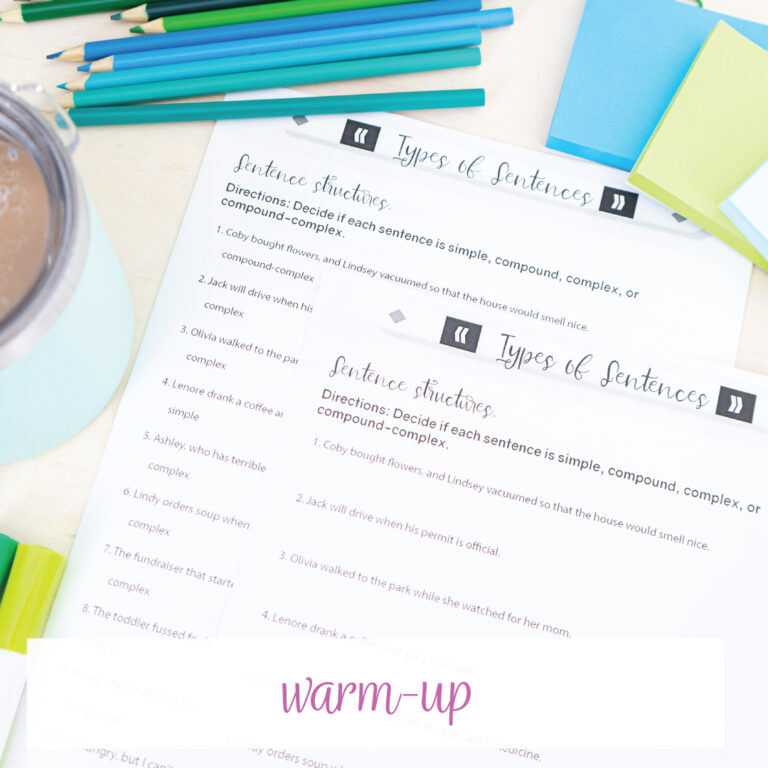 Types of Sentences
Sentence structures.
Directions: Decide if each sentence is simple, compound, complex, or
compound-complex.
1. Coby bought flowers, and Lindsey vacuumed so that the house would smell nice.
compound-complex
2. Jack will drive when his
complex
3. Olivia walked to the
complex
4. Lenore drank a coffee
simple
5. Ashley, who has terrible
complex
6. Lindy orders soup when
complex
7. The fundraiser that
complex
8. The toddler fussed
Types of Sentences
Sentence structures.
Directions: Decide if each sentence is simple, compound, complex, or
compound-complex.
1. Coby bought flowers, and Lindsey vacuumed so that the house would smell nice.
2. Jack will drive when his permit is official.
3. Olivia walked to the park while she watched for her mom.
4. Lenore drank a
warm-up
medicine.
orders soup